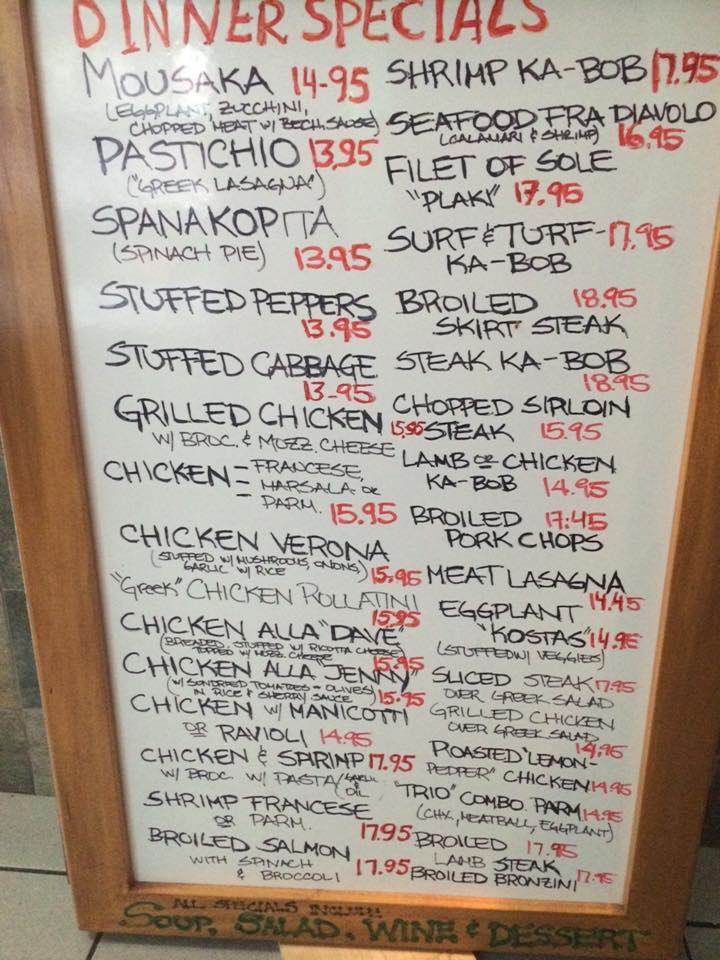 DINNER SPECIALS
MOUSAKA 14-95
(EGGPLANT, ZUCCHINI,
CHOPPED MEAT W/ BECH. SAUSE)
PASTICHIO 13.95
("GREEK LASAGNA")
SPANAKOPITA
(SPINACH PIE) 13.95
STUFFED PEPPERS
13.95
STUFFED CABBAGE
13-95
GRILLED CHICKEN 15.95
W/ BROC. & MOZZ. CHEESE
CHICKEN = FRANCESE,
MARSALA OR
PARM. 15.95
CHICKEN VERONA
(STUFFED W/ MUSHROOMS, ONIONS,
GARLIC W/ RICE) 15.95
"Greek" CHICKEN ROLLATINI
15.95
CHICKEN ALLA "DAVE"
(BREADED, STUFFED W/ RICOTTA CHEESE)
TOPPED W/ MOZZ. CHEESE 15.95
CHICKEN ALLA JENNY"
(W/ SUNDRIED TOMATOES - OLIVES)
IN RICE & SHERRY SAUCE) 15.95
CHICKEN W/ MANICOTTI
OR RAVIOLI 14.95
CHICKEN & SPIRINP 17.95
W/ BROC. W/ PASTA/GARLIC
OIL
SHRIMP FRANCESE
OR PARM. 17.95
BROILED SALMON
WITH SPINACH 17.95
& BROCCOLI
SHRIMP KA-BOB 17.95
SEAFOOD FRA DIAVOLO
(CALAMARI & SHRIMP) 16.95
FILET OF SOLE
"PLAKI" 17.95
SURF & TURF- 17.95
KA-BOB
BROILED 18.95
SKIRT STEAK
STEAK KA-BOB
18.95
CHOPPED SIRLOIN
STEAK 15.95
LAMB OR CHICKEN
KA-BOB 14.95
BROILED 17.45
PORK CHOPS
MEAT LASAGNA
14.45
EGGPLANT
"KOSTAS" 14.95
(STUFFED W/ VEGGIES)
SLICED STEAK 17.95
OVER GREEK SALAD
GRILLED CHICKEN
OVER GREEK SALAD
14.95
ROASTED "LEMON-
PEPPER" CHICKEN 14.95
"TRIO" COMBO PARM 14.95
(CHX, MEATBALL, EGGPLANT)
BROILED 17.95
LAMB STEAK
BROILED BRONZINI 17.95
ALL SPECIALS INCLUDE
SOUP, SALAD, WINE & DESSERT